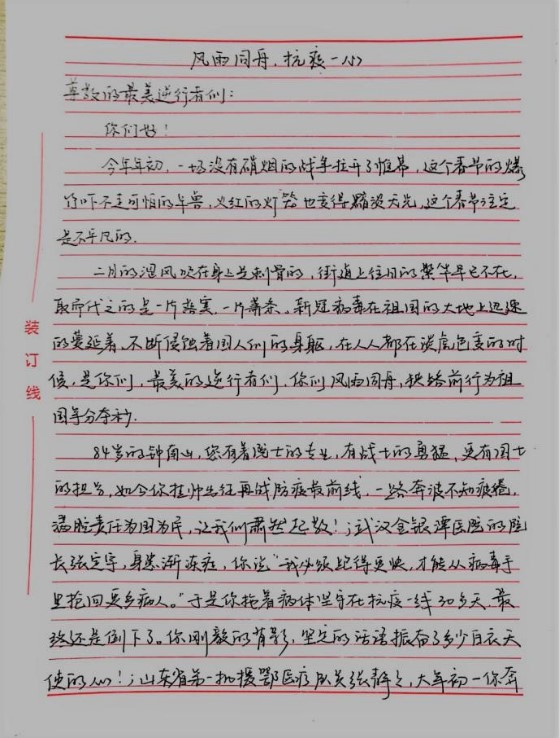 风雨同舟,抗疫一心
尊敬的最美逆行者们:
你们好!
今年年初,一场没有硝烟的战争拉开了帷幕,这个春节的爆
竹吓不走可怕的年兽,火红的灯笼也变得黯淡无光,这个春节注定
是不平凡的.
二月的湿风吹在身上是刺骨的,街道上往日的繁华早已不在,
取而代之的是一片寂寞,一片萧条.新冠病毒在祖国的大地上迅速
的蔓延着,不断侵蚀着国人们的身躯,在人人都在谈虎色变的时
候,是你们,最美的逆行者们,你们风雨同舟,披荆前行为祖
国争分夺秒.
84岁的钟南山,您有着院士的专业,有战士的勇猛,更有国士
的担当,如今你挂帅出征再战防疫最前线,一路奔波不知疲惫,
满腔责任为国为民,让我们肃然起敬!;武汉金银潭医院的院
长张定宇,身患渐冻症,你说"我必须跑得更快,才能从病毒手
里抢回更多病人。"于是你拖着病体坚守在抗疫一线30多天,最
终还是倒下了。你刚毅的背影,坚定的话语振奋了多少白衣天
使的心!;山东省第一批援鄂医疗队员张静静,大年初一你奔
装订线